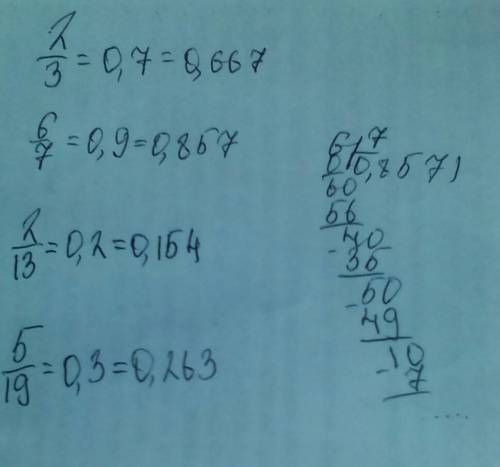 2/3 = 0,7 = 0,667
6/7 = 0,9 = 0,857
2/13 = 0,2 = 0,154
5/19 = 0,3 = 0,263
6 | 7
0 | 0,857)
60
56
- 40
35
- 50
49
- 10
7
.....